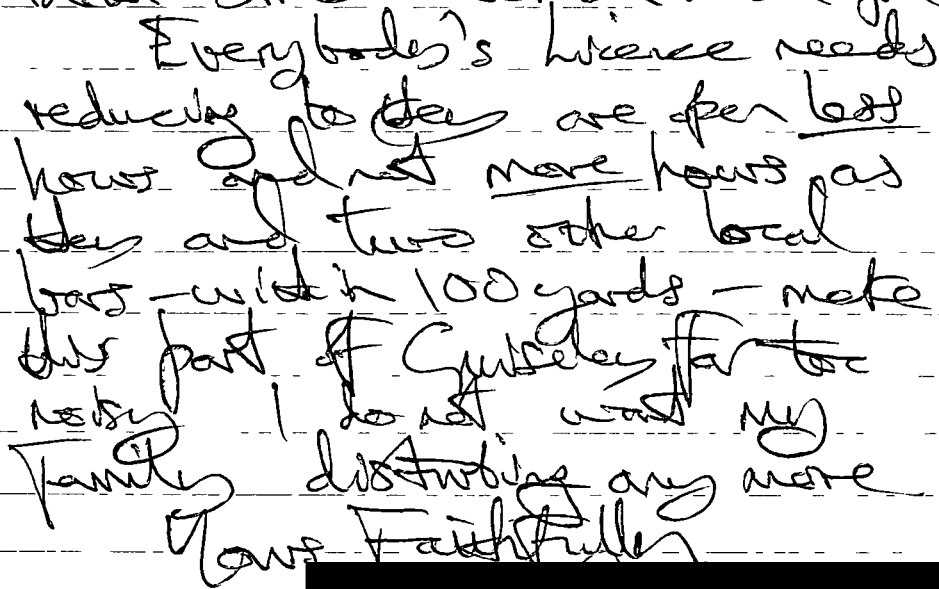 Everybody's Licence needs
reducing to they are open less
hours and not more hours as
they and two other local
bars - within 100 yards - make
this part of Guiseley far too
noisy I do not want my
Family disturbing any more
Yours Faithfully